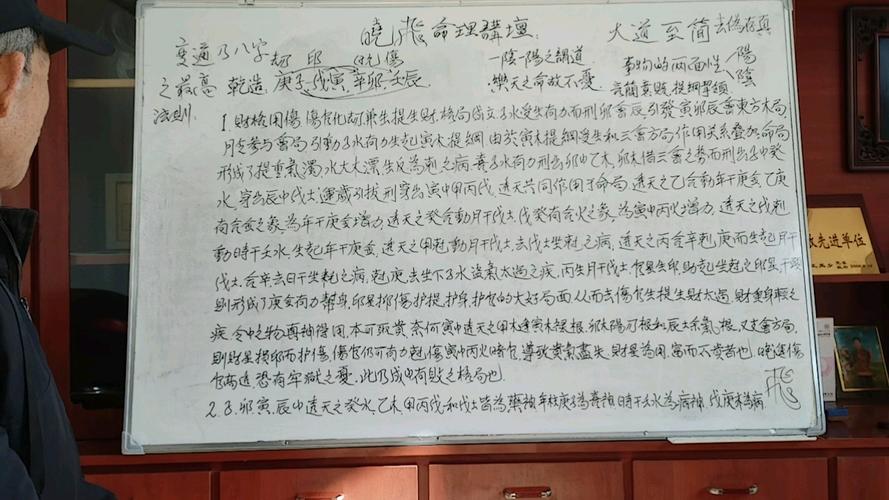 曉飛命理講壇
大道至简 去偽存真
变通乃八字
之最高
法则
劫 印 (比) 傷
乾造 庚子 戊寅 辛卯 壬辰
一陰一陽之謂道
樂天之命故不憂
事物的两面性 陽 陰
言簡意赅 提綱挈领
1. 財格用傷 傷官化劫 生提生財 格局成立 子水受生有力而刑卯會辰 引發寅卯辰會東方木局
月支参与會局 引動子水有力生起寅木提綱 由於寅木提綱受生和三會方局作用关系叠加命局
形成了提重氣濁 水大木漂 生反為剋之病 喜子水有力刑出卯中乙木 卯木借三會之势而刑出子中癸
水 穿出辰中戊土 運歲引拔刑穿出寅中甲丙戊 透天共同作用于命局 透天之乙合動年干庚金 乙庚
有合金之象 為年干庚金增力 透天之癸合動月干戊土 戊癸有合火之象 為寅中丙火增力 透天之戊剋
動時干壬水 生起年干庚金 透天之甲剋動月干戊土 去戊土坐剋之病 透天之丙合辛剋庚而生起月干
戊土 合辛去日干坐剋之病 剋庚去坐下子水洩氣太過之疾 丙生月干戊土 官星生印 助起坐剋之印星
則形成了庚金有力幫身 印星抑傷护提 护身 护官的大好局面 从而去傷官生提生財太過 財重身轻之
疾 令中之物再神得用 本可致贵 奈何寅中透天之甲木逢寅木禄根 卯木陽刃根和辰土余氣根 又支會方局
則財星損印而护傷 傷官仍可有力剋傷寅中丙火暗官 導致贵氣盡失 財星為用 富而不贵者也 晚運傷
官高透 恐有牢狱之憂 此乃成中有败之格局也
2. 子 卯 寅 辰中透天之癸水 乙木 甲丙戊和戊土皆為藥神 年柱庚子為喜神 時干壬水為病神
先进单位